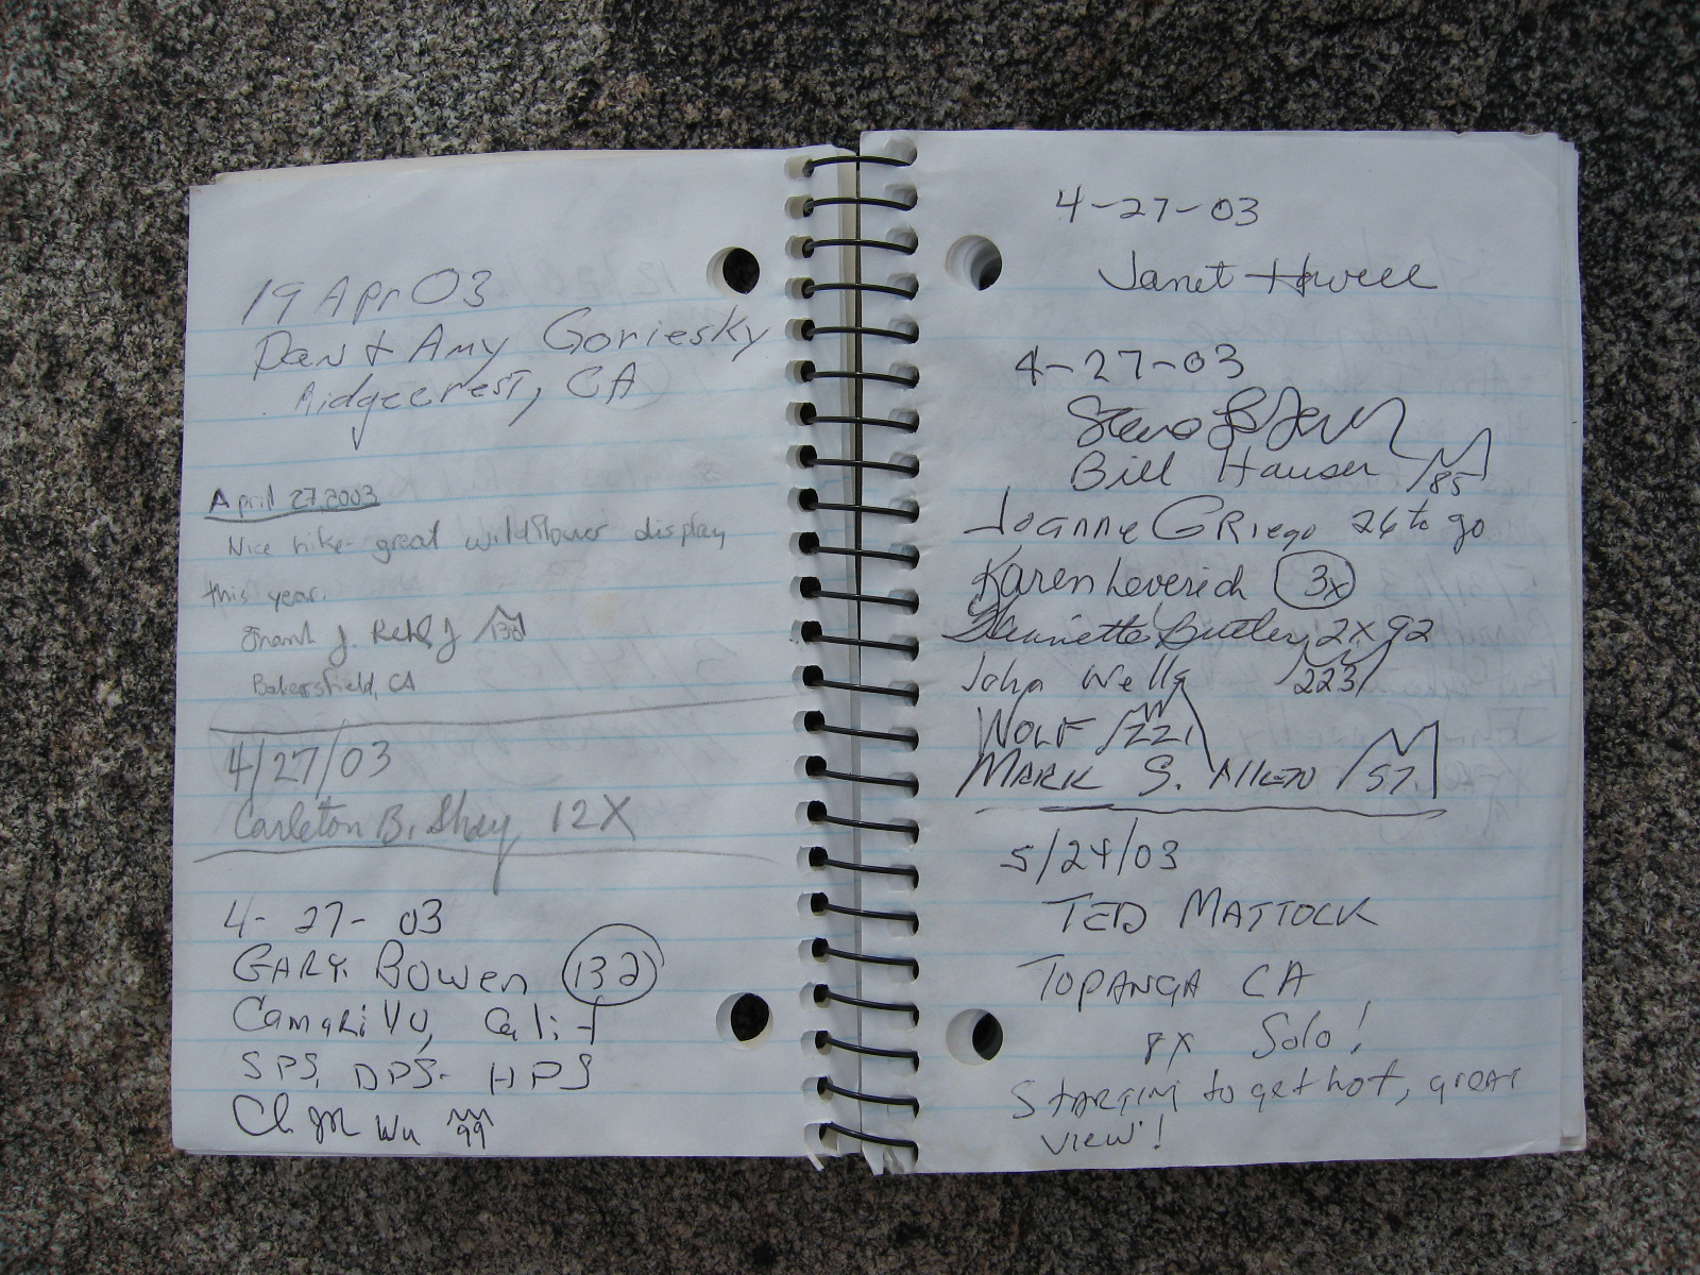 19 Apr 03
Dan + Amy Goriesky
Ridgecrest, CA
April 27, 2003
Nice hike - great wildflower display
this year.
Frank J.
Bakersfield, CA
4/27/03
Carleton B. Shay 12X
4-27-03
GARY Bowen 132
Camarillo, Calif
SPS, DPS- HPS
Wu 99
4-27-03
Janet Howell
4-27-03
Bill Hauser 85
Joanne GRiego 26 to go
Karen Leverich 3x
Henriette Butler 2x 92
John Wells 223
WOLF 122
MARK S. 57
5/24/03
TED MATTOCK
TOPANGA CA
8X Solo!
STARTING to get hot, great
view!